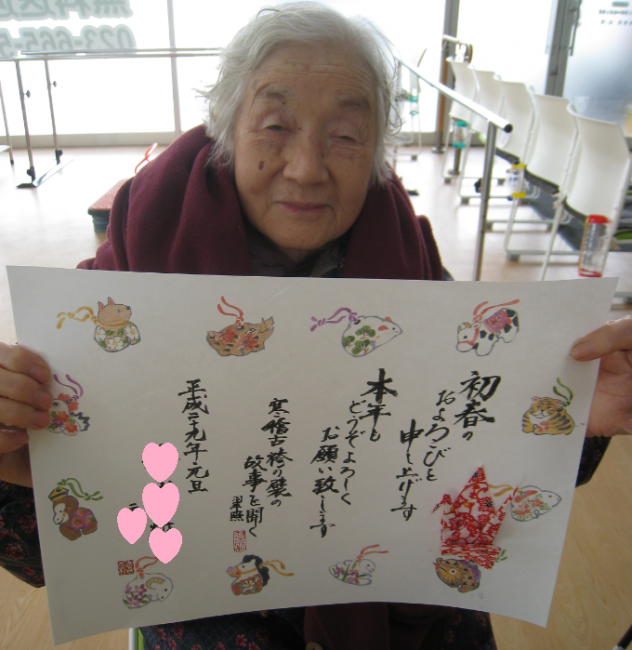 初春の
およろこびを
申し上げます
本年も
どうぞよろしく
お願い致します
寒稽古袴の襞の
故事を聞く
平成二十九年元旦
無料送迎